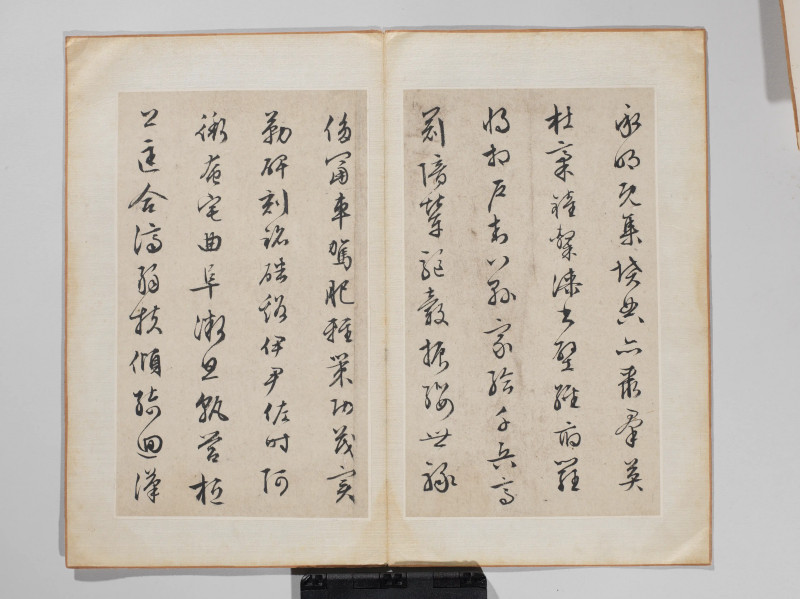 承明既集墳典亦聚群英
杜稾鍾隸漆書壁經府羅
將相戶封八縣家給千兵高
冠陪輦驅轂振纓世祿
侈富車駕肥輕策功茂實
勒碑刻銘磻溪伊尹佐時阿
衡奄宅曲阜微旦孰營桓
公匡合濟弱扶傾綺迴漢